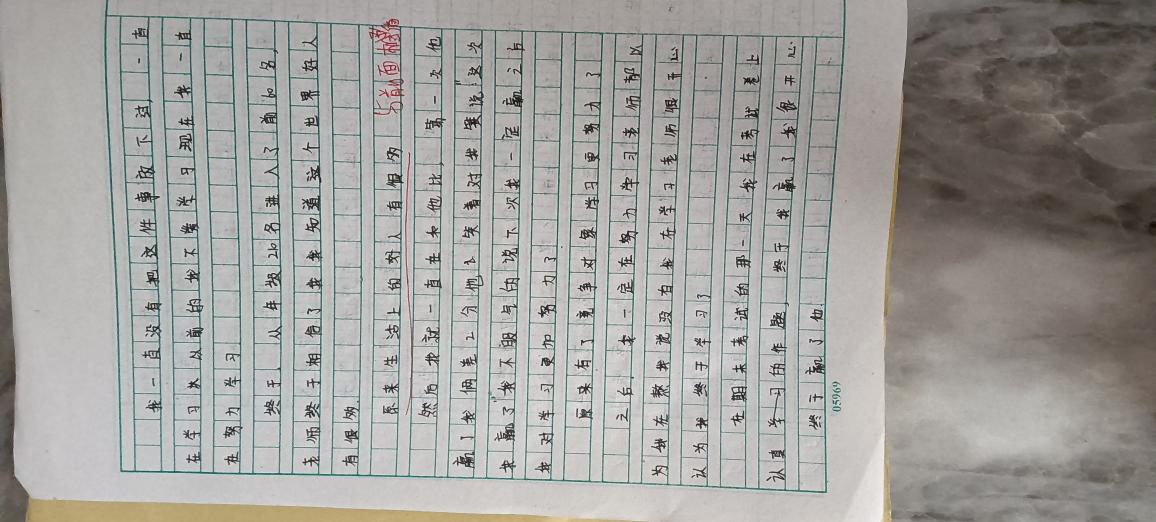 我一直没有把这件事放下过，一直
在学习从以前的我不爱学习现在我一直
在努力学习
终于，从年级210名进入了前60名，
老师终于相信了我我知道这个世界好人
有很多.
原来生活上的好人有很多
与前面
然后我就一直在和他比，第一次他
赢了我俩差2分他2笑着对我说"这次
我赢了"我不服气的说下次我一定赢之后
我对学习更加努力了
原来有了竞争对象学习更努力了
之后，我一定在努力学习老师都以
为我在熬我说没有我在学习老师很开心
认为我终于学习了
在期末考试的那一天我在考试卷上
认真学习的作题，终于我赢了我很开心
终于赢了他.
05969